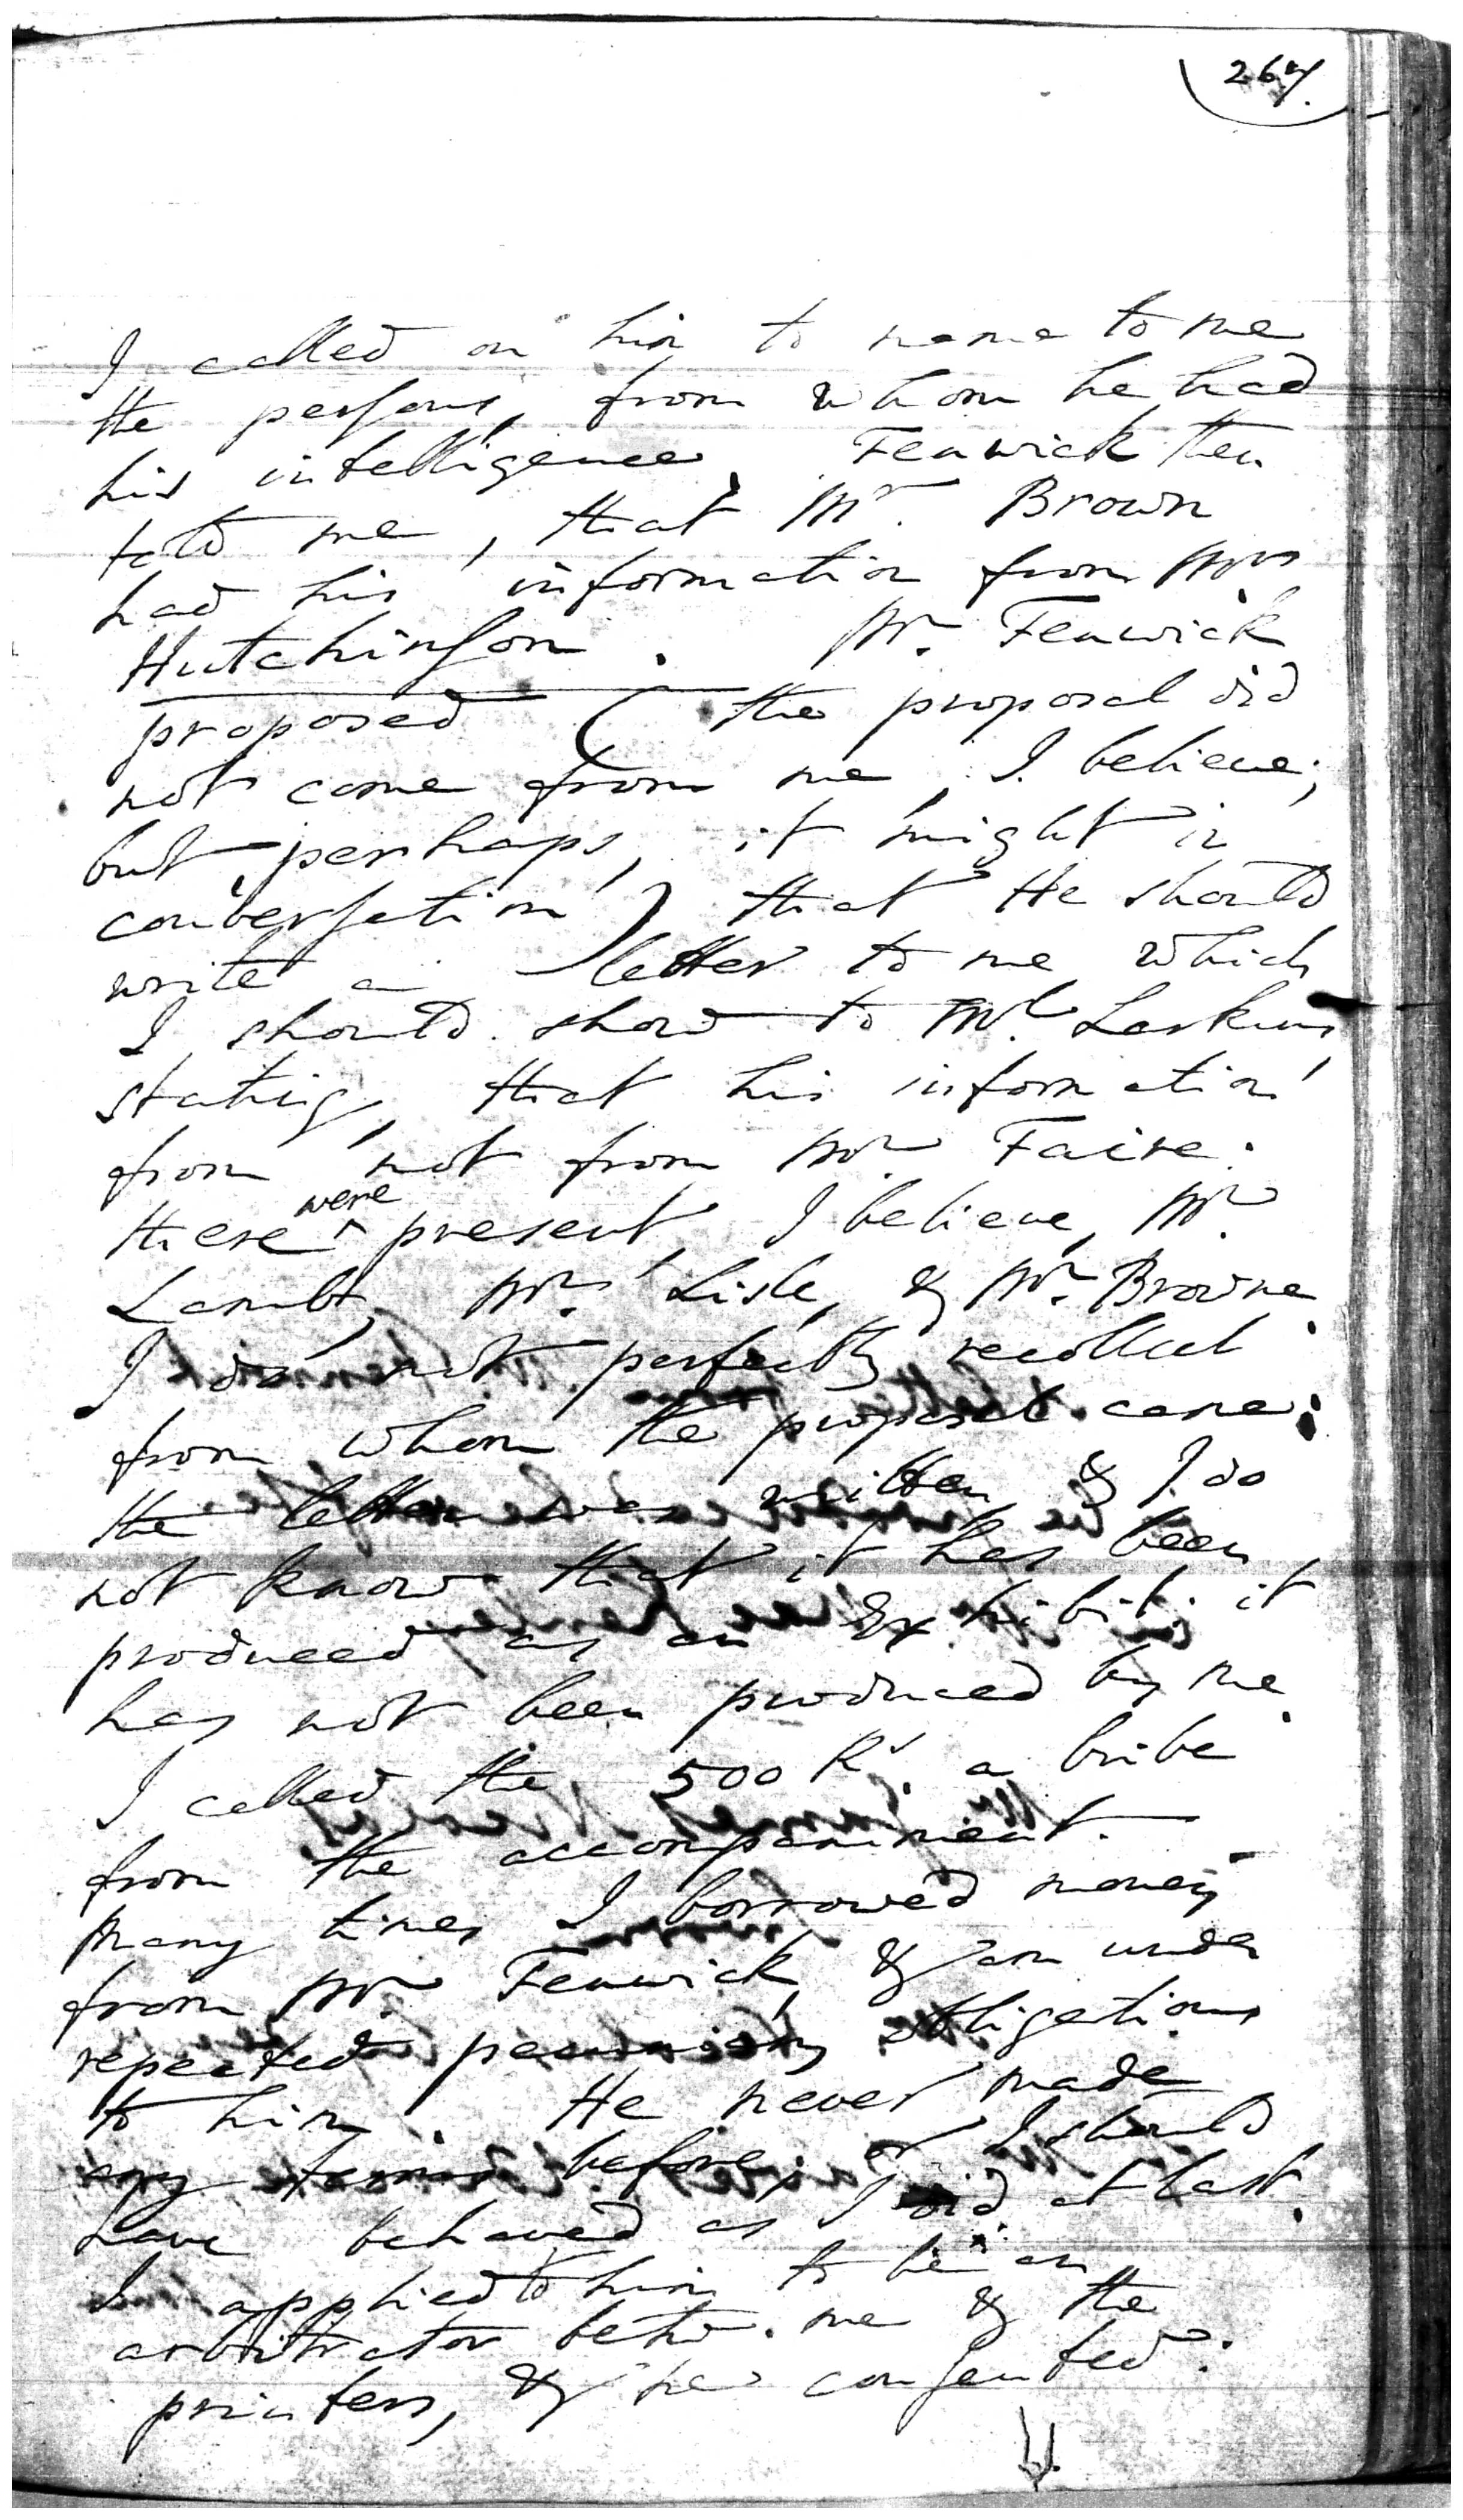 267.
I called on him to name to me
the persons, from whom he had
his intelligence. Fenwick then
told me, that Mr. Brown
had his information from Mrs
Hutchinson. Mr. Fenwick
proposed (the proposal did
not come from me, I believe;
but, perhaps, it might in
conversation) that He should
write a letter to me, which
I should show to Mr. Larkins,
stating, that his information
from not from Mr Faire.
there were present, I believe, Mr.
Lambt, Mr. Lisle, & Mr. Browne.
I do not perfectly recollect
from whom the proposal came:
the letter was written, & I do
not know that it has been
produced as an Exhibit: it
has not been produced by me.
I called the 500 Rs. a bribe
from the accompaniment.
Many times I borrowed money
from Mr. Fenwick, & am under
repeated pecuniary obligations
to him. He never made
any terms before, or I should
have behaved as I did at last.
I applied to him to be an
arbitrator betw. me & the
printers, & he consented.